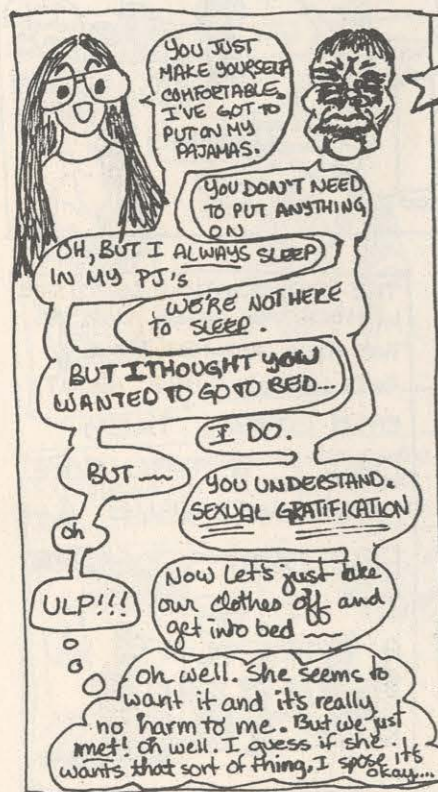 YOU JUST
MAKE YOURSELF
COMFORTABLE.
I'VE GOT TO
PUT ON MY
PAJAMAS.
YOU DON'T NEED
TO PUT ANYTHING
ON
OH, BUT I ALWAYS SLEEP
IN MY PJ'S
WE'RE NOT HERE
TO SLEEP.
BUT I THOUGHT YOU
WANTED TO GO TO BED...
I DO.
BUT
YOU UNDERSTAND.
SEXUAL GRATIFICATION
oh
ULP!!!
Now Let's just take
our clothes off and
get into bed
Oh well. She seems to
want it and it's really
no harm to me. But we just
met! Oh well. I guess if she
wants that sort of thing, I spose it's
okay....